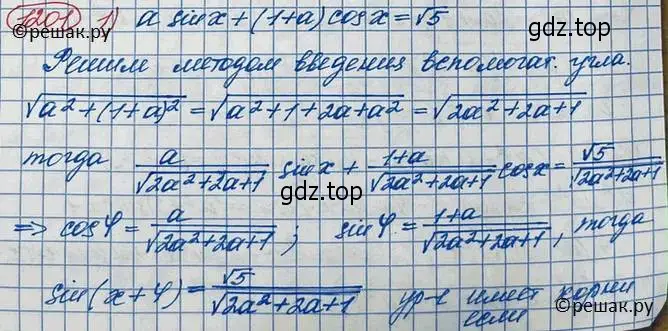 1201 1) a sinx + (1+a) cosx = √5
©решак.ру
Решим методом введения вспомогат. угла.
√(a²+(1+a)²) = √(a²+1+2a+a²) = √(2a²+2a+1)
gdz.top
тогда a/√(2a²+2a+1) sinx + 1+a/√(2a²+2a+1) cosx = √5/√(2a²+2a+1)
gdz.top
⇒ cosφ = a/√(2a²+2a+1); sinφ = 1+a/√(2a²+2a+1), тогда
gdz.top
sin(x+φ) = √5/√(2a²+2a+1) ур-е имеет корни
если
©решак.ру
©решак.ру